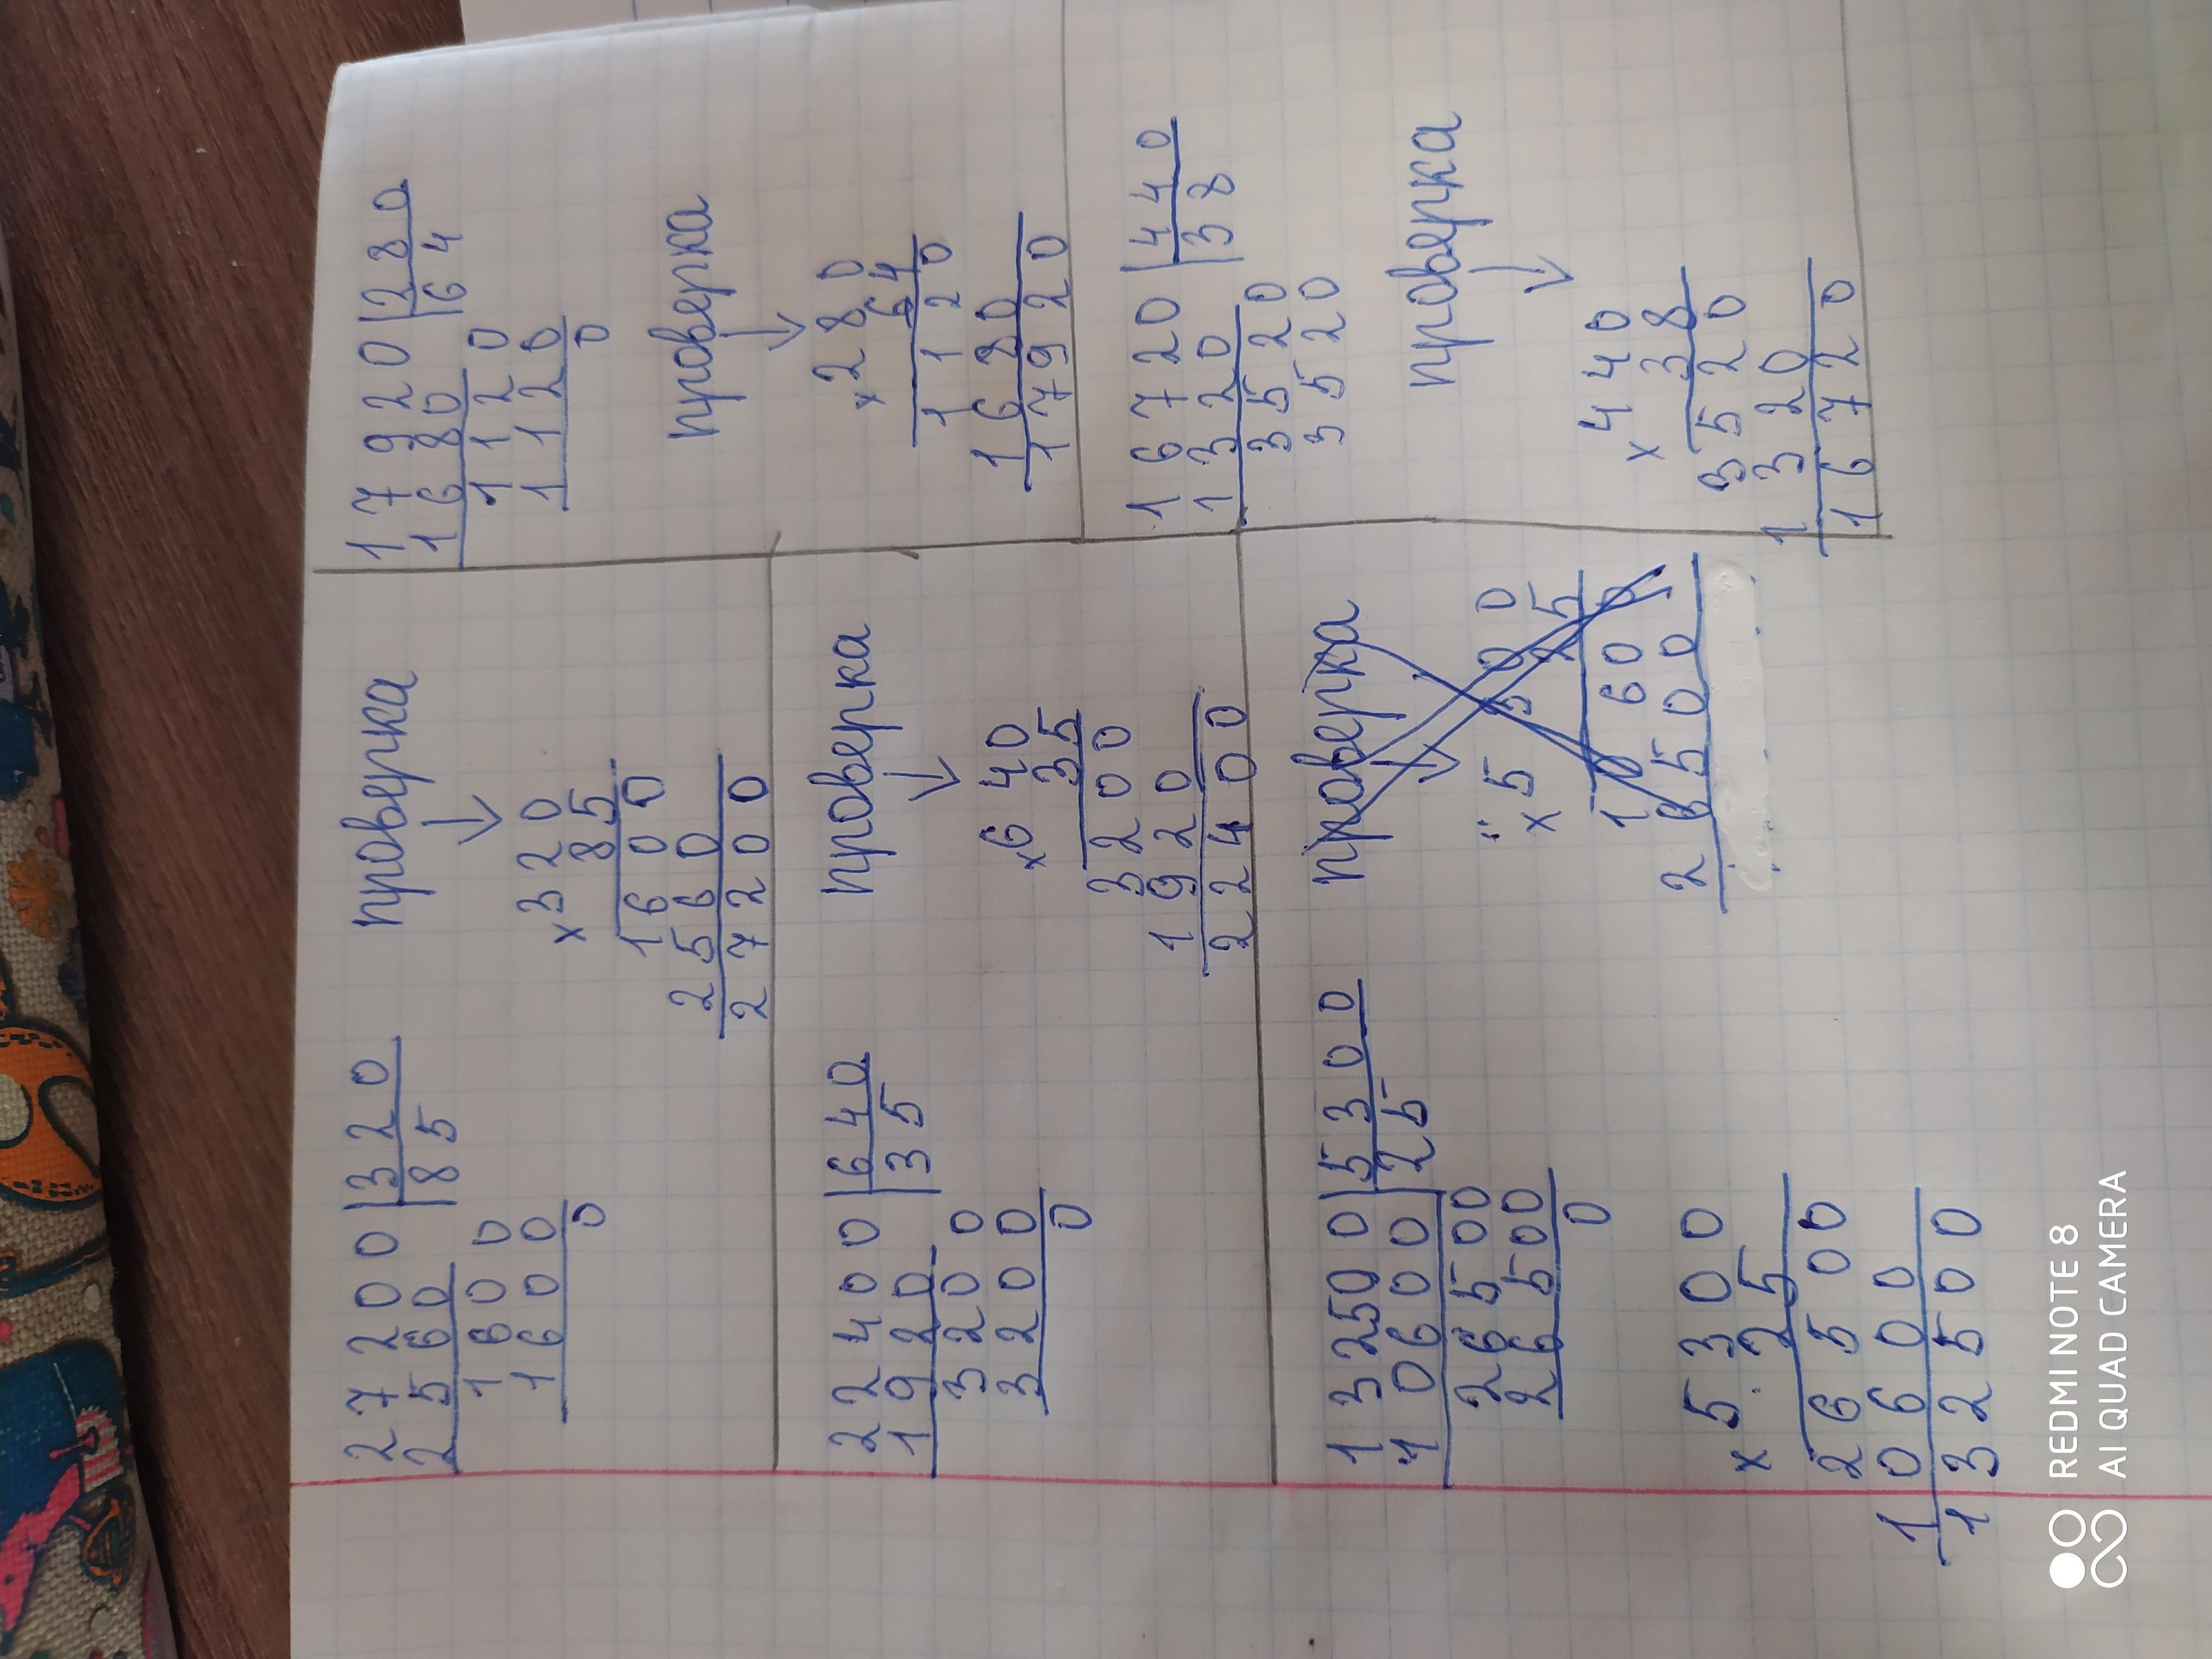 27200 320
2560 85
1600
1600
0
проверка
↓
×320
85
1600
2560
27200
17920 280
1680 64
1120
1120
0
проверка
↓
×280
64
1120
1680
17920
22400 640
1920 35
3200
3200
0
проверка
↓
×640
35
3200
1920
22400
16720 440
1320 38
3520
3520
проверка
↓
×440
38
3520
1320
16720
132500 5300
10600 25
26500
26500
0
×5300
25
26500
10600
132500
проверка
↓
REDMI NOTE 8
AI QUAD CAMERA